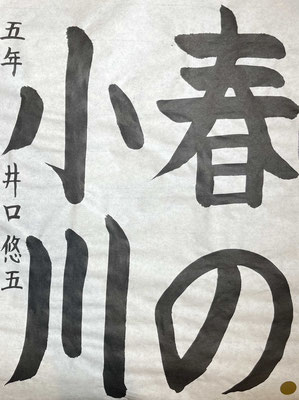 春の
小川
五年 井口悠五